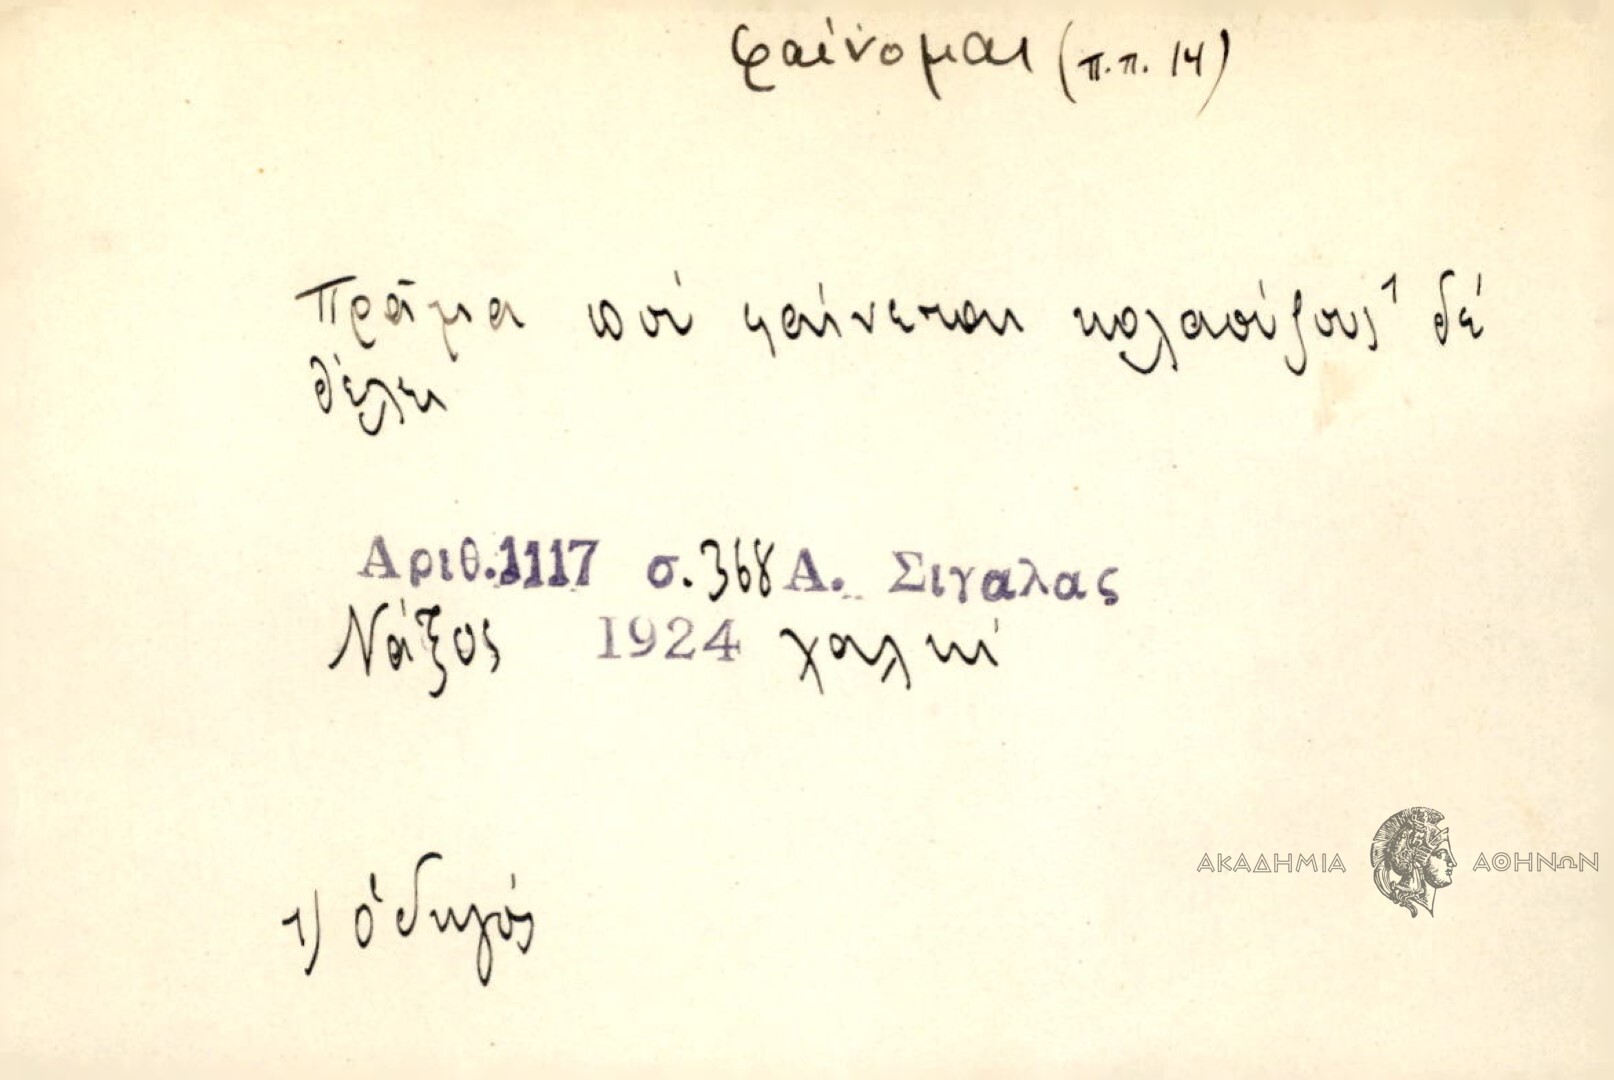 φαίνομαι (π.π. 14)
Πρᾶμα ποὺ φαίνεται κολαούζους¹ δέ
θέλει
Αριθ. 1117 σ. 368 Α. Σιγαλας
Νάξος 1924 Χαλκί
1) ὁδηγός
ΑΚΑΔΗΜΙΑ ΑΘΗΝΩΝ